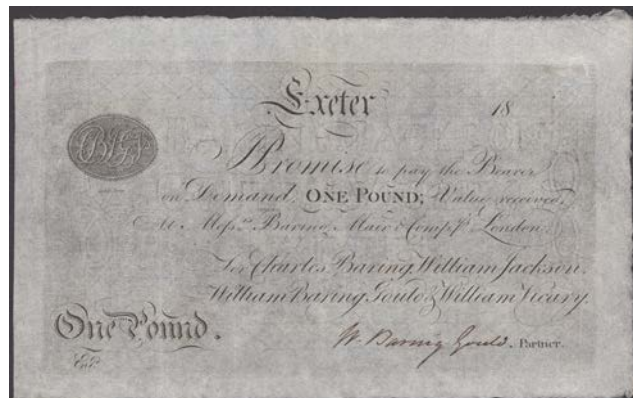 Exeter 18
I Promise to pay the Bearer
on Demand, ONE POUND; Value received,
At Mess.rs Baring, Mair & Comp.y London.
For Charles Baring, William Jackson,
William Baring Gould & William Vicary.
One Pound.
W. Baring Gould, Partner.
Ent.d